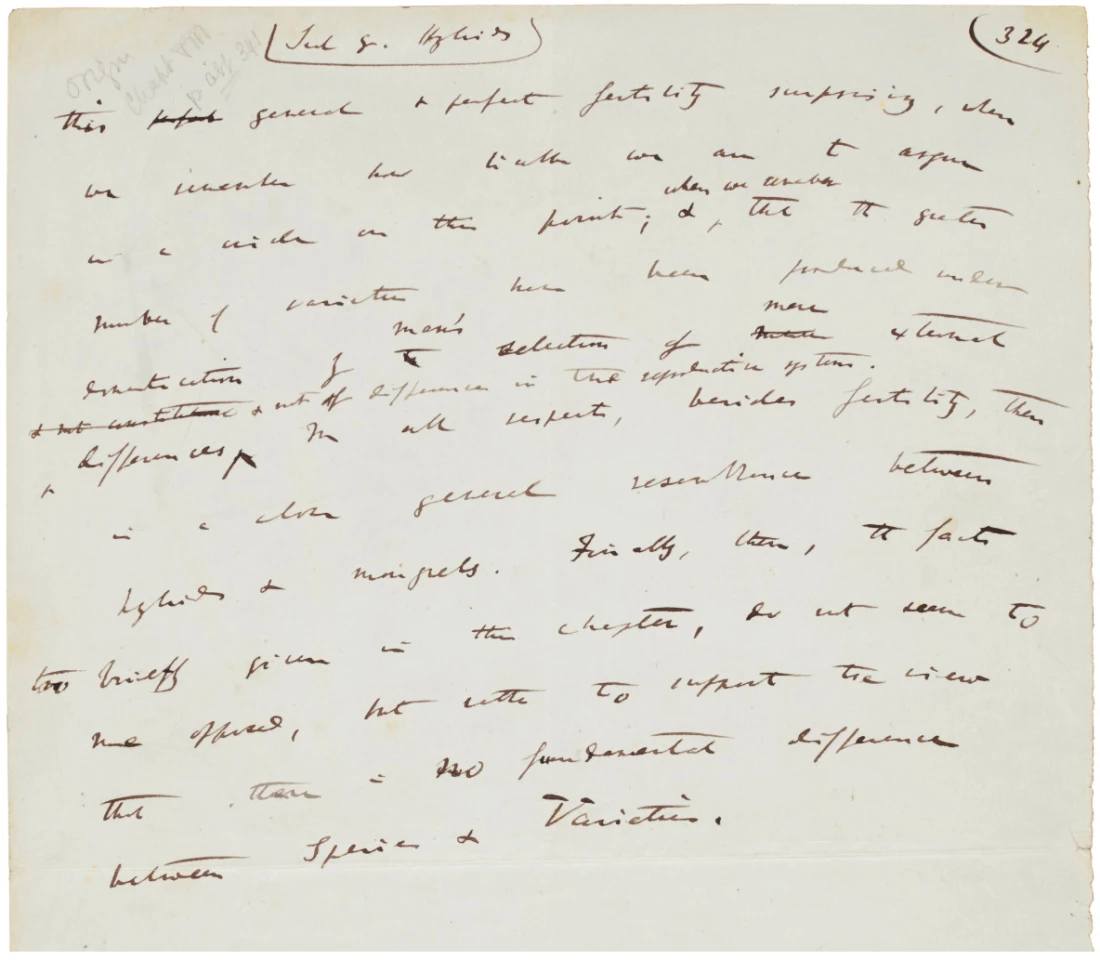 Origin
Chapt VIII
p 341
Sect 9. Hybrids
324
this perfect general & perfect fertility surprising, when
we remember how liable we are to argue
when we remember
in a circle on this point; & , that the greater
number of varieties have been produced under
man's mere
domestication by the selection of mere external
& not constitutional & not of differences in the reproductive system.
differences, In all respects, besides fertility, there
is a close general resemblance between
hybrids & mongrels. Finally, then, the facts
too briefly given in this chapter, do not seem to
me opposed, but rather to support the view
that there is no fundamental difference
between Species & Varieties.